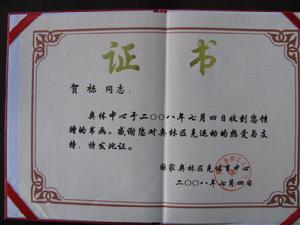 证书
贺栎 同志：
奥体中心于二〇〇八年七月四日收到您馈
赠的书画。感谢您对奥林匹克运动的热爱与支
持，特发此证。
国家奥林匹克体育中心
二〇〇八年七月四日